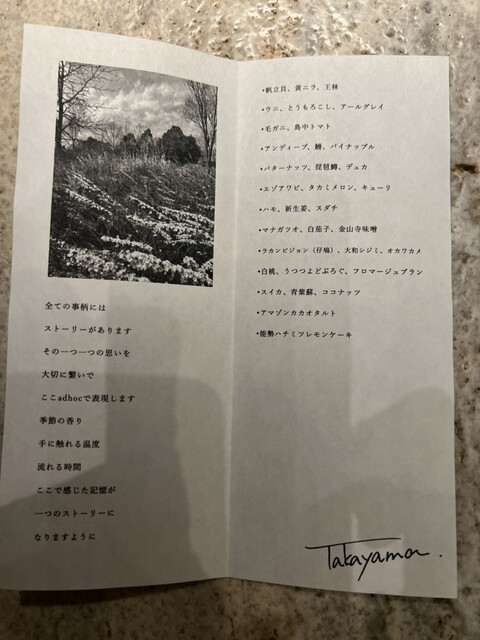 全ての事柄には
ストーリーがあります
その一つ一つの思いを
大切に繋いで
ここadhocで表現します
季節の香り
手に触れる温度
流れる時間
ここで感じた記憶が
一つのストーリーに
なりますように
•帆立貝、黄ニラ、王林
•ウニ、とうもろこし、アールグレイ
•毛ガニ、島中トマト
•アンディーブ、鰻、パイナップル
•バターナッツ、琵琶鱒、デュカ
•エゾアワビ、タカミメロン、キューリ
•ハモ、新生姜、スダチ
•マナガツオ、白茄子、金山寺味噌
•ラカンピジョン（仔鳩）、大和シジミ、オカワカメ
•白桃、うつつよどぶろぐ、フロマージュブラン
•スイカ、青紫蘇、ココナッツ
•アマゾンカカオタルト
•能勢ハチミツレモンケーキ
Takayama.